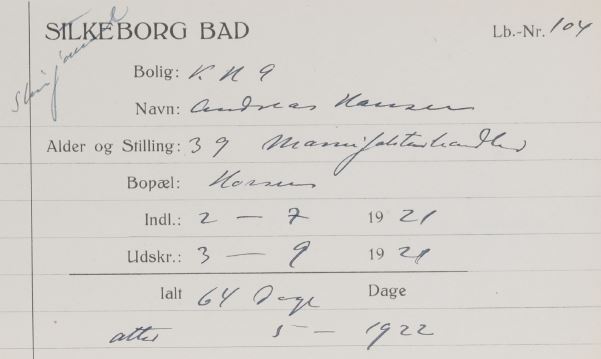 SILKEBORG BAD
Lb.-Nr. 104
Bolig: K. N 9
Navn: Andreas Hansen
Alder og Stilling: 39 Manufakturhandler
Bopæl: Horsens
Indl.: 2 — 7 1921
Udskr.: 3 — 9 1921
Ialt 64 Dage Dage
atter 5 — 1922